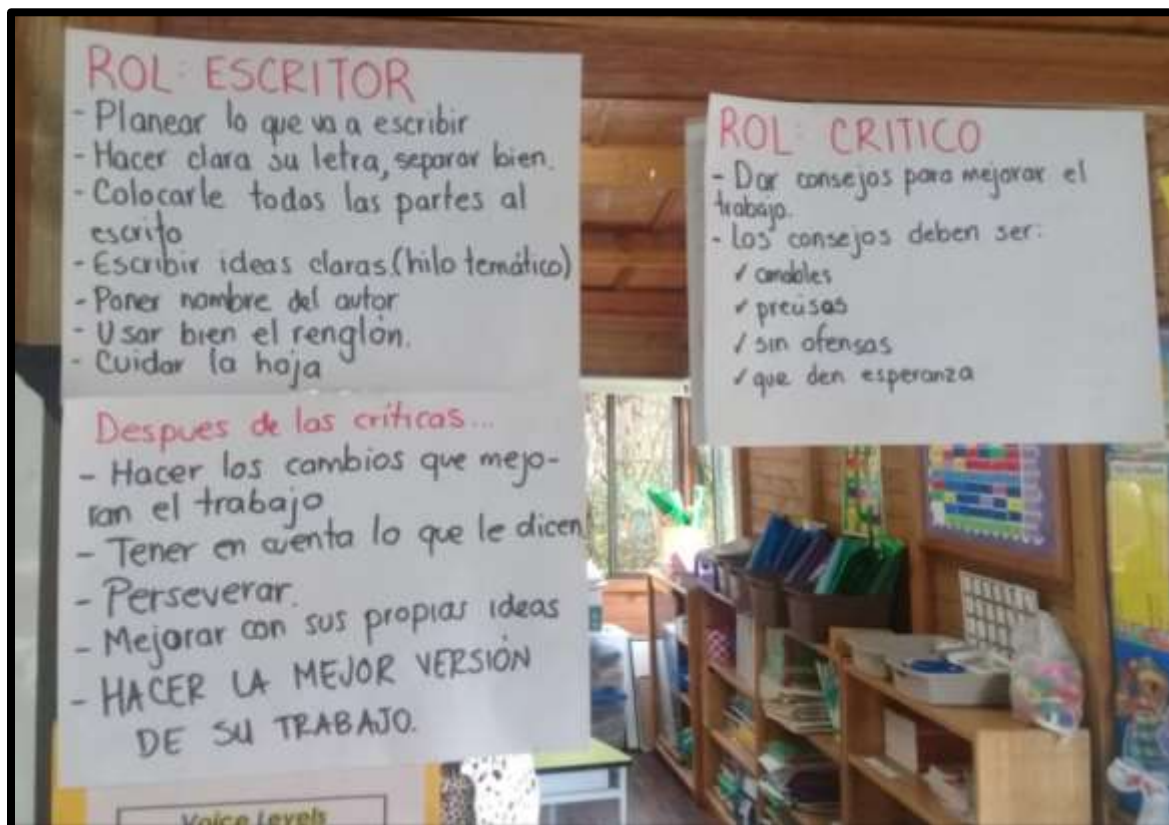 ROL: ESCRITOR
- Planear lo que va a escribir
- Hacer clara su letra, separar bien.
- Colocarle todas las partes al
escrito
- Escribir ideas claras (hilo temático)
- Poner nombre del autor
- Usar bien el renglón.
- Cuidar la hoja
Despues de las críticas...
- Hacer los cambios que mejo-
ran el trabajo
- Tener en cuenta lo que le dicen
- Perseverar.
- Mejorar con sus propias ideas
- HACER LA MEJOR VERSIÓN
DE SU TRABAJO.
Voice Levels
ROL: CRITICO
- Dar consejos para mejorar el
trabajo.
- Los consejos deben ser:
✓ amables
✓ precisas
✓ sin ofensas
✓ que den esperanza